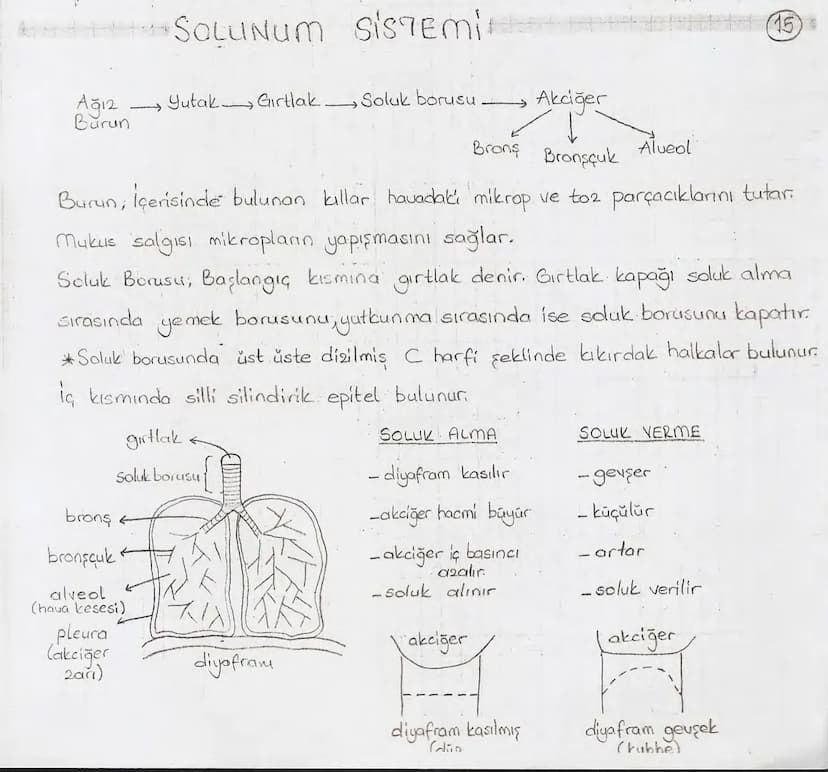 SOLUNUM SİSTEMİ
15
Ağız → Yutak → Gırtlak → Soluk borusu → Akciğer
Burun
Bronş Bronşçuk Alveol
Burun; İçerisinde bulunan kıllar havadaki mikrop ve toz parçacıklarını tutar.
Mukus salgısı mikropların yapışmasını sağlar.
Soluk Borusu; Başlangıç kısmına gırtlak denir. Gırtlak kapağı soluk alma
sırasında yemek borusunu, yutkunma sırasında ise soluk borusunu kapatır.
*Soluk borusunda üst üste dizilmiş C harfi şeklinde kıkırdak halkalar bulunur.
İç kısmında silli silindirik epitel bulunur.
gırtlak
soluk borusu
bronş
bronşçuk
alveol
(hava kesesi)
pleura
(akciğer
zarı)
diyafram
SOLUK ALMA
- diyafram kasılır
- akciğer hacmi büyür
- akciğer iç basıncı
azalır.
- soluk alınır
akciğer
diyafram kasılmış
SOLUK VERME
- gevşer
- küçülür
- artar
- soluk verilir
akciğer
diyafram gevşek
(kubbe)